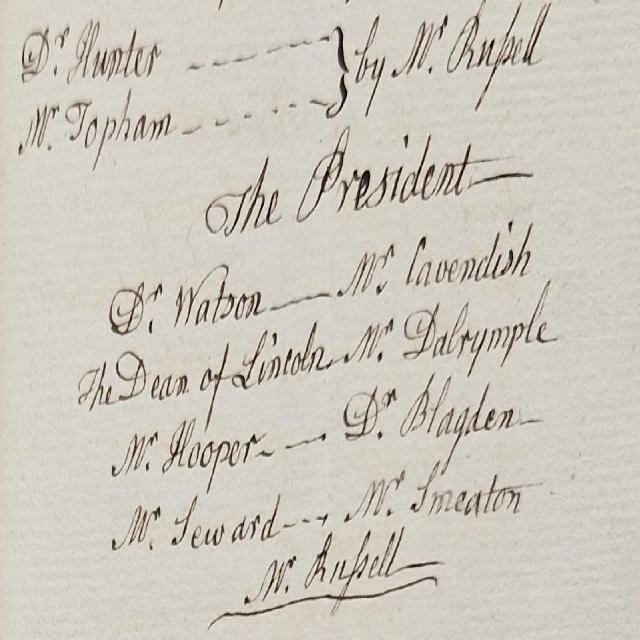 Dr. Hunter
Mr. Topham } by Mr. Rufsell
The President
Dr. Watson Mr. Cavendish
The Dean of Lincoln Mr. Dalrymple
Mr. Hooper Dr. Blagden
Mr. Seward Mr. Smeaton
Mr. Rufsell